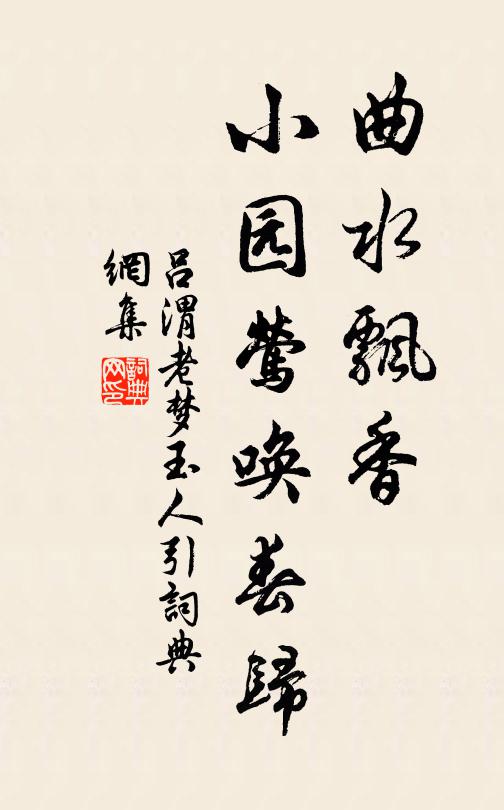 曲水飄香
小园鶯唤春歸
吕渭老梦玉人引詞典
網集
詞典
网印